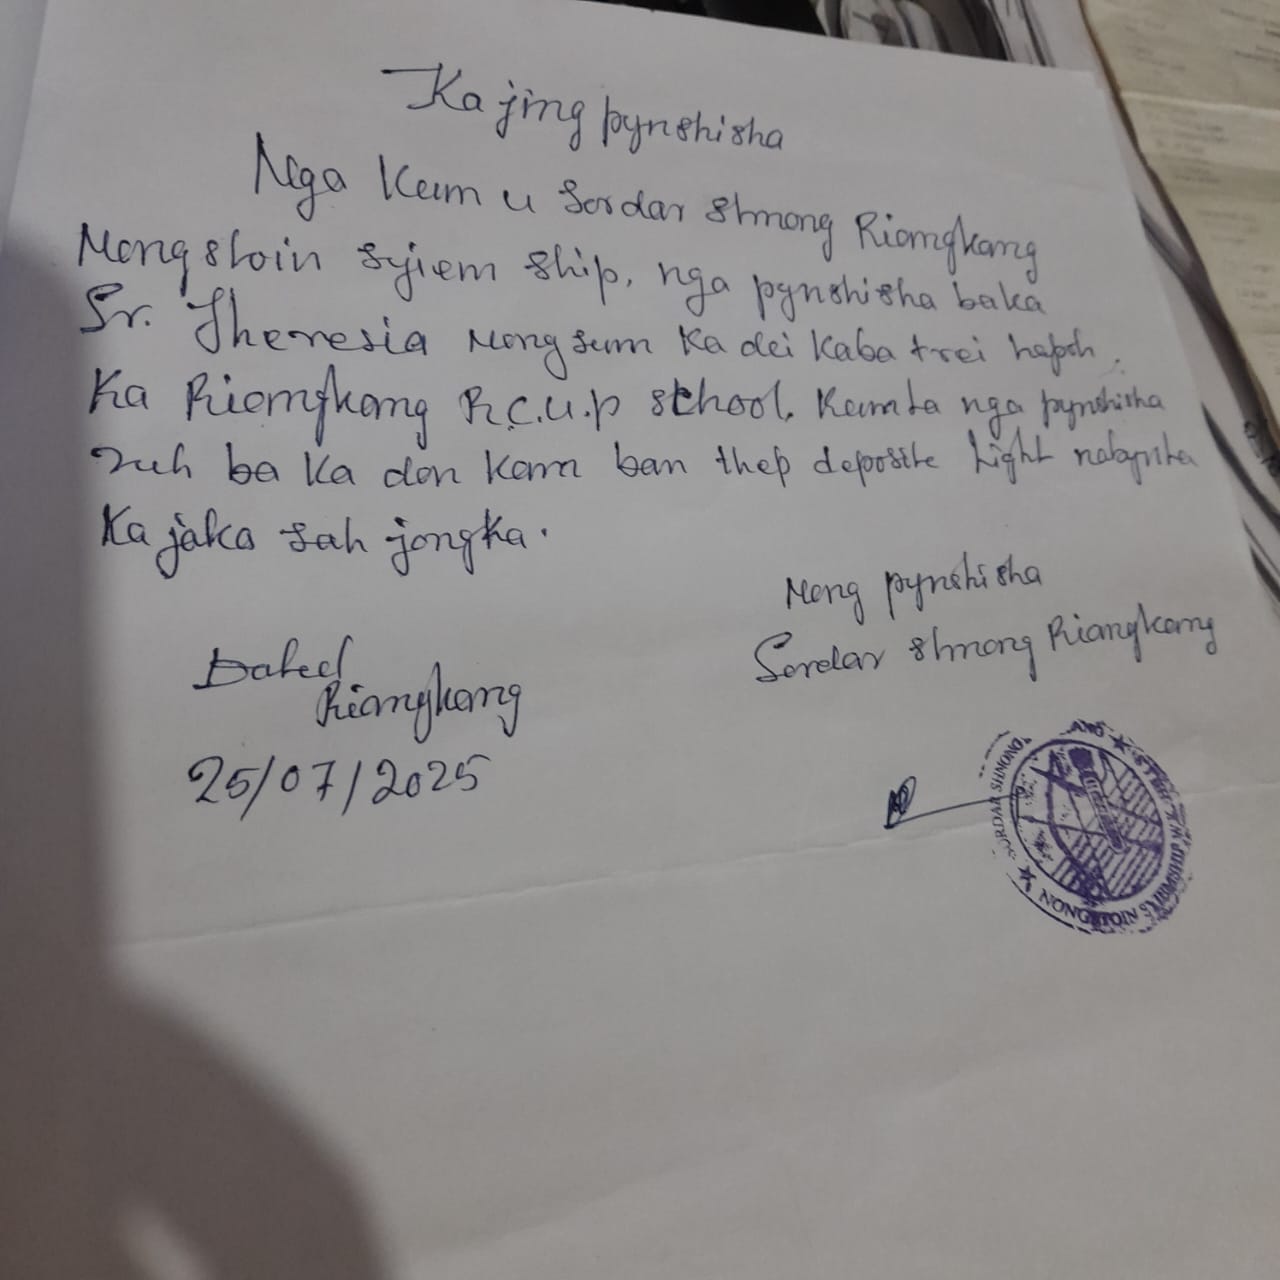 Ka jing pynshisha
Nga kum u Sordar Shnong Riangkang
Nongstoin Syiem Ship, nga pynshisha baka
Sr. Theresia Nongsum ka dei kaba trei hapoh
Ka Riangkang R.C.U.P School. Kumta nga pynshisha
ruh ba ka don kam ban thep deposite Light nabynta
Ka jaka sah jongka.
Nong pynshisha
Sordar Shnong Riangkang
Dated
Riangkang
25/07/2025
SORDAR SHNONG